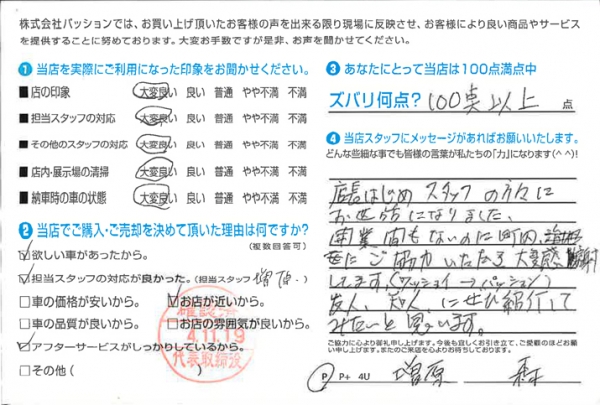 株式会社パッションでは、お買い上げ頂いたお客様の声を出来る限り現場に反映させ、お客様により良い商品やサービス
を提供することに努めております。大変お手数ですが是非、お声を聞かせてください。
① 当店を実際にご利用になった印象をお聞かせください。
■ 店の印象 大変良い 良い 普通 やや不満 不満
■ 担当スタッフの対応 大変良い 良い 普通 やや不満 不満
■ その他のスタッフの対応 大変良い 良い 普通 やや不満 不満
■ 店内・展示場の清掃 大変良い 良い 普通 やや不満 不満
■ 納車時の車の状態 大変良い 良い 普通 やや不満 不満
② 当店でご購入・ご売却を決めて頂いた理由は何ですか?
(複数回答可)
☑欲しい車があったから。
☑担当スタッフの対応が良かった。(担当スタッフ 増原.)
□車の価格が安いから。 ☑お店が近いから。
□車の品質が良いから。 □お店の雰囲気が良いから。
☑アフターサービスがしっかりしているから。
□その他( )
4.11.19
代表取締役
③ あなたにとって当店は100点満点中
ズバリ何点? 100点以上 点
④ 当店スタッフにメッセージがあればお願いいたします。
どんな些細な事でも皆様の言葉が私たちの「力」になります(^^)!
店長はじめ スタッフの方々に
お世話になりました。
開業間もないのに町内
にご協力いただき大変感謝
してます。(ワッショイ→パッション)
友人、知人にぜひ紹介して
みたいと思います。
ご協力に心より御礼申し上げます。今後も宜しくお引き立て、ご愛顧のほどお願い申し上げます。またのご来店を心よりお待ちしております。
P P+ 4U 増原 森